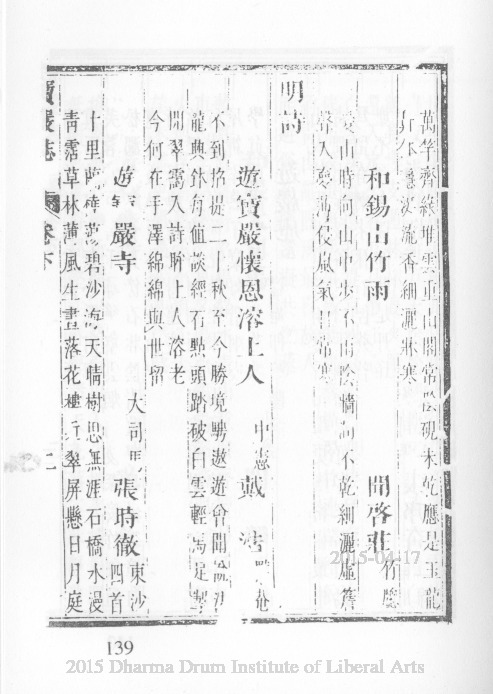 萬竿齊綠堆雲重山閣常陰硯未乾應是玉龍
香細灑牀寒
和錫山竹雨 聞啓莊竹
愛山時向山中步不雨陰牆 不乾細灑虛簷
聲入夢 侵嵐氣 常寒
明詩
遊寶嚴懷恩溶上人 中憲戴
不到招提二十秋至今勝境騁遨遊曾聞
龍與鉢每値談經石點頭踏破白雲輕 足
開翠靄入詩眸上人溶老
今何在手澤綿綿與世留
遊寶嚴寺 大司馬張時徹東沙四首
十里 碧沙海天晴樹思無涯石橋水漫
靑靄草林薄風生晝落花樓 翠屏懸日月庭
寶嚴志 卷下 二
139
2015-04-17
2015 Dharma Drum Institute of Liberal Arts